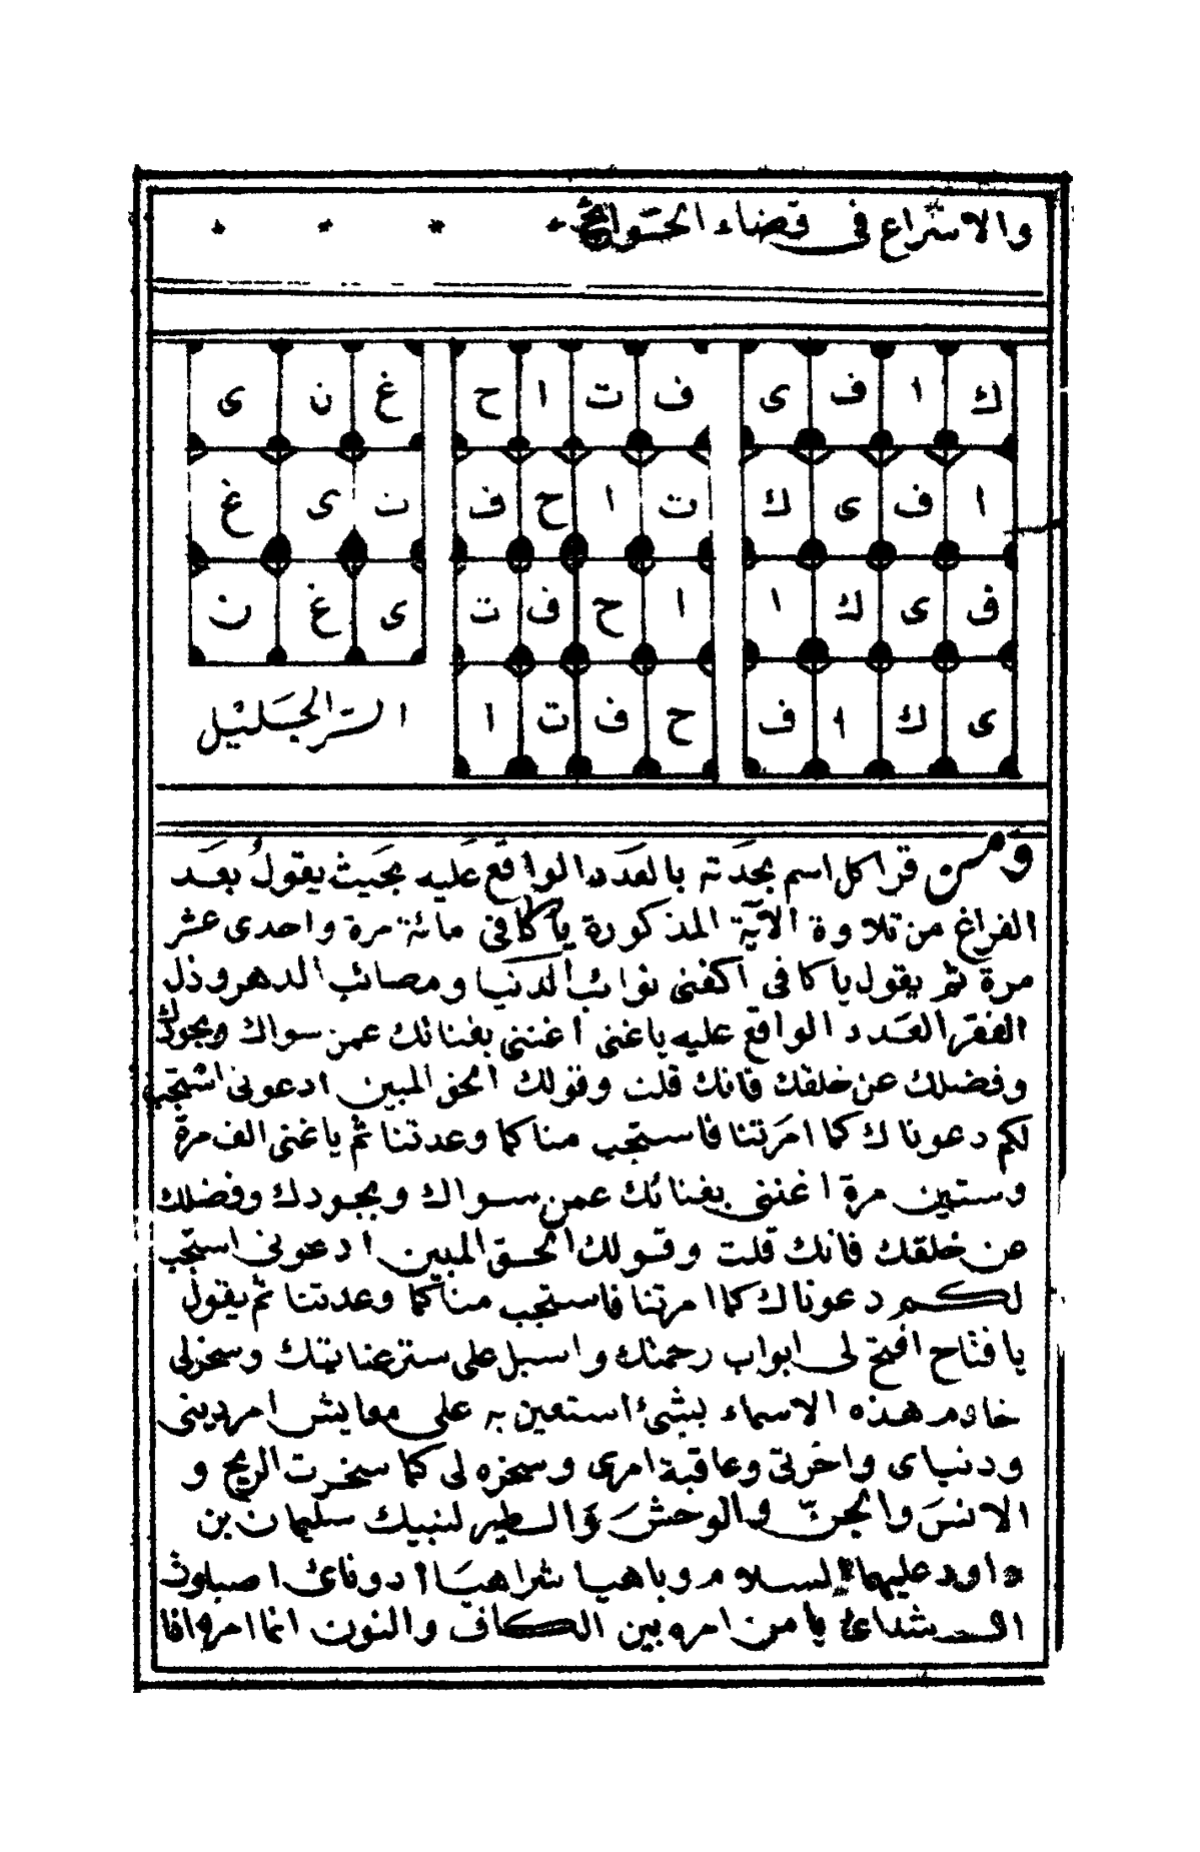 والاسراع فى قضاء الحوائج * * * *
ك ا ف ى ف ت ا ح غ ن ى
ا ف ى ك ت ا ح ف ن ى غ
ف ى ك ا ا ح ف ت ى غ ن
ى ك ا ف ح ف ت ا السر الجليل
ومن قرا كل اسم بجدته بالعدد الواقع عليه بحيث يقول بعد
الفراغ من تلاوة الآية المذكورة ياكافى مائة مرة واحدى عشر
مرة ثم يقول ياكافى اكفنى نوائب الدنيا ومصائب الدهر وذل
الفقر العدد الواقع عليه ياغنى اغننى بغنائك عمن سواك وبجودك
وفضلك عن خلقك فانك قلت وقولك الحق المبين ادعونى استجب
لكم دعوناك كما امرتنا فاستجب مناكما وعدتنا ثم ياغنى الف مرة
وستين مرة اغننى بغنائك عمن سواك وبجودك وفضلك
عن خلقك فانك قلت وقولك الحق المبين ادعونى استجب
لكم دعوناك كما امرتنا فاستجب مناكما وعدتنا ثم يقول
يافتاح افتح لى ابواب رحمتك واسبل على ستر عنايتك وسخر لى
خادم هذه الاسماء بشئ استعين به على معايش امر دينى
ودنياى واخرتى وعاقبة امرى وسخره لى كما سخرت الريح و
الانس والجن والوحش والطير لنبيك سليمان بن
داود عليهما السلام وباهيا شراهيا ادوناى اصباوث
ال شداى يا من امره بين الكاف والنون انما امره اذا